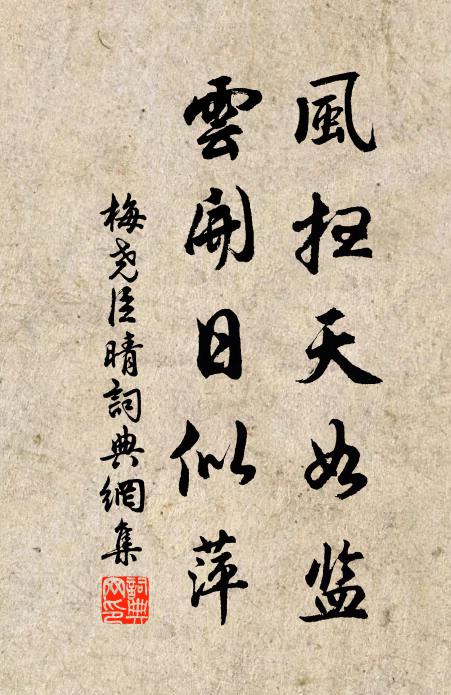 風扫天如监
雲開日似萍
梅尧臣晴詞典網集
詞典网印